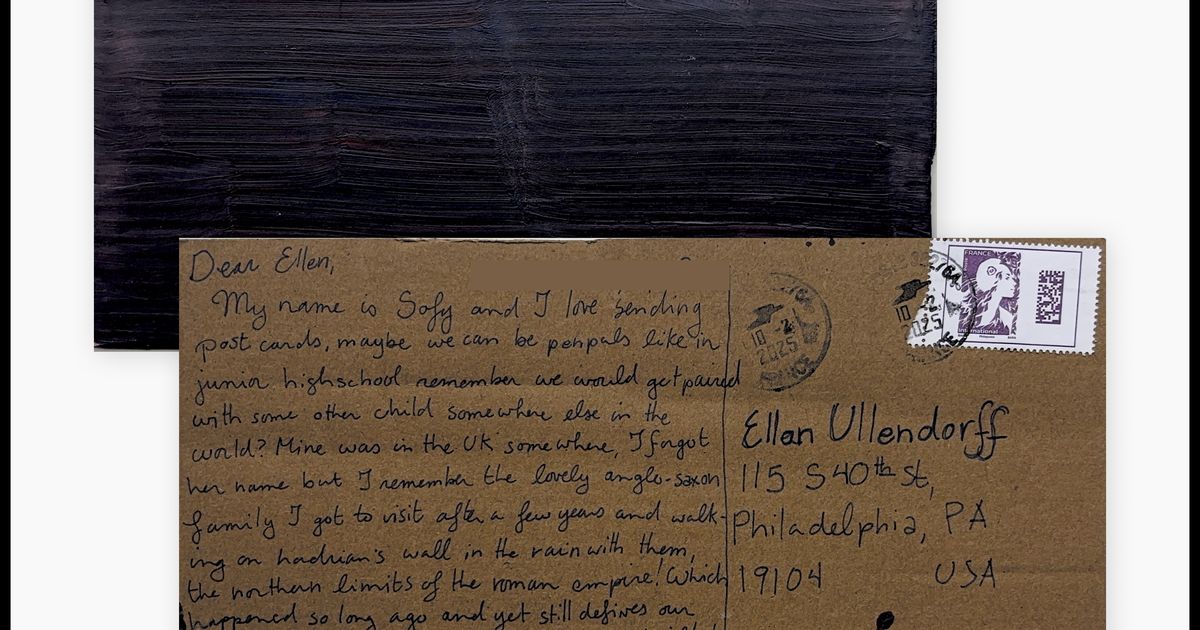 Dear Ellen,
My name is Sofy and I love sending
post cards, maybe we can be penpals like in
junior highschool remember we would get paired
with some other child somewhere else in the
world? Mine was in the UK somewhere, I forgot
her name but I remember the lovely anglo-saxon
family I got to visit after a few years and walk-
ing on hadrian's wall in the rain with them,
the northern limits of the roman empire! Which
happened so long ago and yet still defines our
FRANCE
International
10-2
2025
FRANCE
10-2
2025
Ellen Ullendorff
115 S 40th St,
Philadelphia, PA
19104 USA